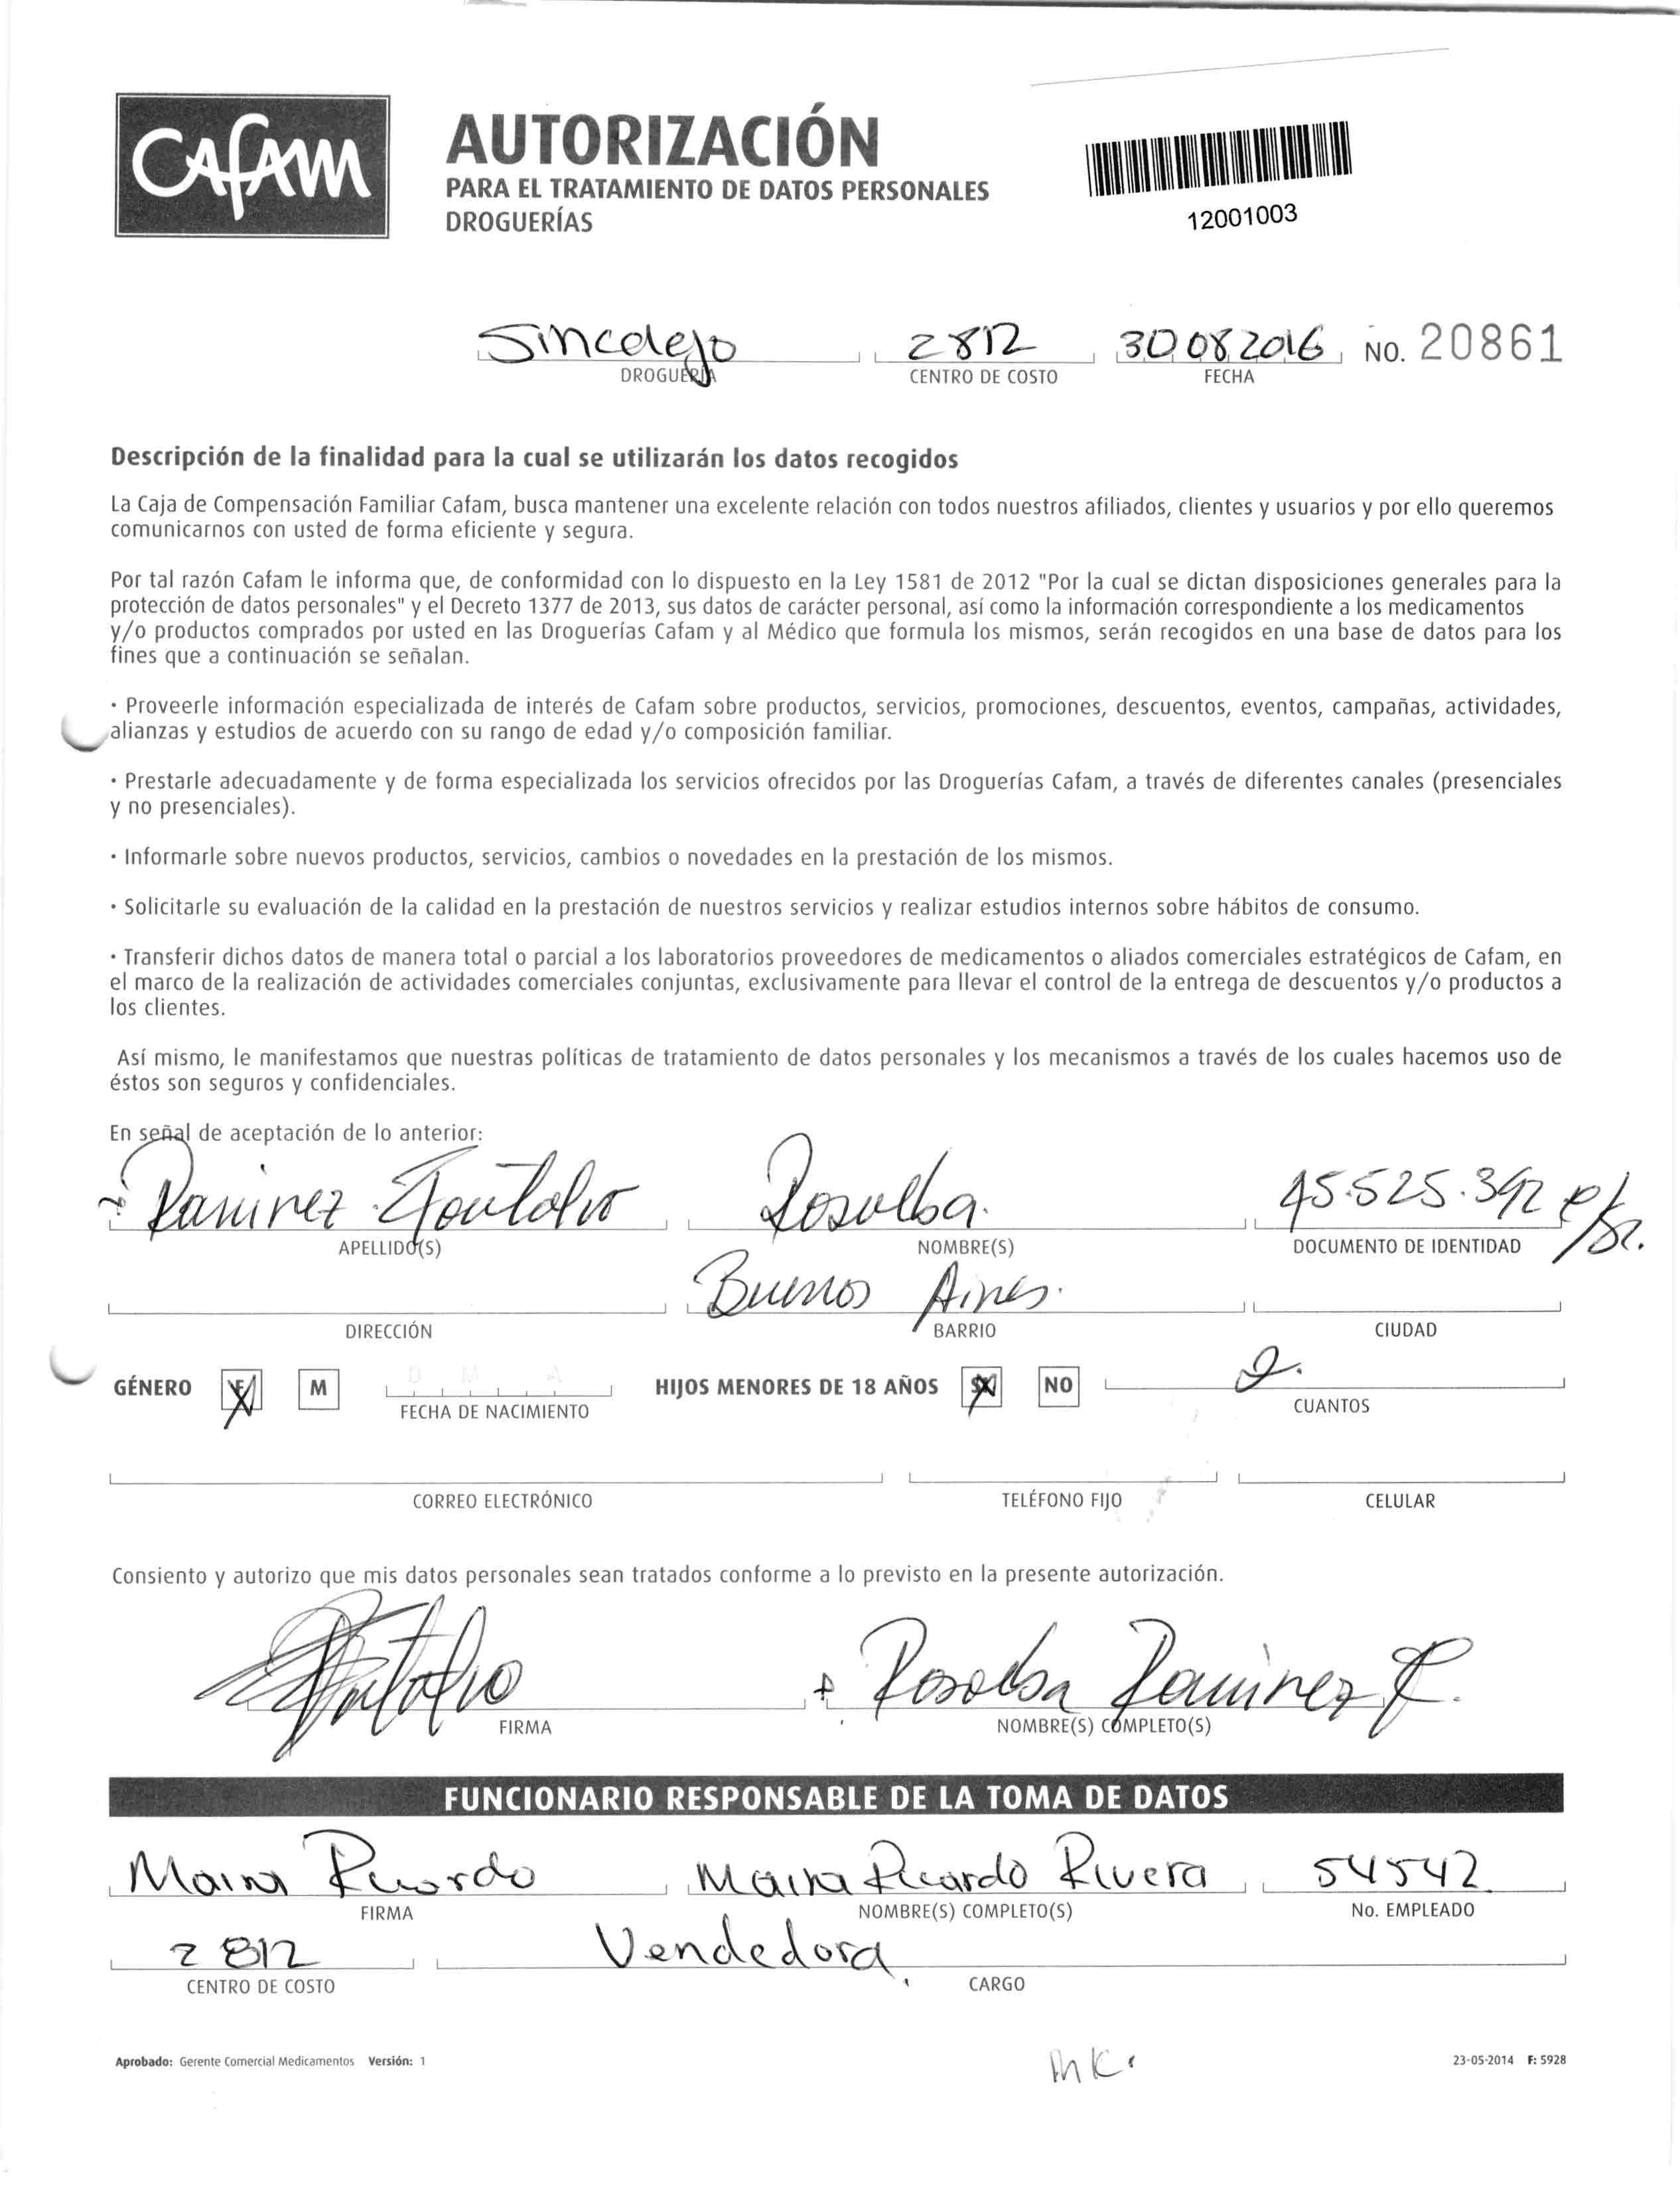 CAFAM
AUTORIZACIÓN
PARA EL TRATAMIENTO DE DATOS PERSONALES
DROGUERÍAS
12001003
Sincelejo 2812 30 08 2016 NO. 20861
DROGUERÍA CENTRO DE COSTO FECHA
Descripción de la finalidad para la cual se utilizarán los datos recogidos
La Caja de Compensación Familiar Cafam, busca mantener una excelente relación con todos nuestros afiliados, clientes y usuarios y por ello queremos
comunicarnos con usted de forma eficiente y segura.
Por tal razón Cafam le informa que, de conformidad con lo dispuesto en la Ley 1581 de 2012 "Por la cual se dictan disposiciones generales para la
protección de datos personales" y el Decreto 1377 de 2013, sus datos de carácter personal, así como la información correspondiente a los medicamentos
y/o productos comprados por usted en las Droguerías Cafam y al Médico que formula los mismos, serán recogidos en una base de datos para los
fines que a continuación se señalan.
· Proveerle información especializada de interés de Cafam sobre productos, servicios, promociones, descuentos, eventos, campañas, actividades,
alianzas y estudios de acuerdo con su rango de edad y/o composición familiar.
· Prestarle adecuadamente y de forma especializada los servicios ofrecidos por las Droguerías Cafam, a través de diferentes canales (presenciales
y no presenciales).
· Informarle sobre nuevos productos, servicios, cambios o novedades en la prestación de los mismos.
· Solicitarle su evaluación de la calidad en la prestación de nuestros servicios y realizar estudios internos sobre hábitos de consumo.
· Transferir dichos datos de manera total o parcial a los laboratorios proveedores de medicamentos o aliados comerciales estratégicos de Cafam, en
el marco de la realización de actividades comerciales conjuntas, exclusivamente para llevar el control de la entrega de descuentos y/o productos a
los clientes.
Así mismo, le manifestamos que nuestras políticas de tratamiento de datos personales y los mecanismos a través de los cuales hacemos uso de
éstos son seguros y confidenciales.
En señal de aceptación de lo anterior:
Ramirez Rosalba 45.525.392
APELLIDO(S) NOMBRE(S) DOCUMENTO DE IDENTIDAD
Buenos Aires.
DIRECCIÓN BARRIO CIUDAD
GÉNERO F M D M A HIJOS MENORES DE 18 AÑOS SI NO 2.
FECHA DE NACIMIENTO CUANTOS
CORREO ELECTRÓNICO TELÉFONO FIJO CELULAR
Consiento y autorizo que mis datos personales sean tratados conforme a lo previsto en la presente autorización.
Rosalba Ramirez
FIRMA NOMBRE(S) COMPLETO(S)
FUNCIONARIO RESPONSABLE DE LA TOMA DE DATOS
Maira Ricardo Maira Ricardo Rivera 54542
FIRMA NOMBRE(S) COMPLETO(S) No. EMPLEADO
2812 Vendedora
CENTRO DE COSTO CARGO
Aprobado: Gerente Comercial Medicamentos Versión: 1 23-05-2014 F: 5928